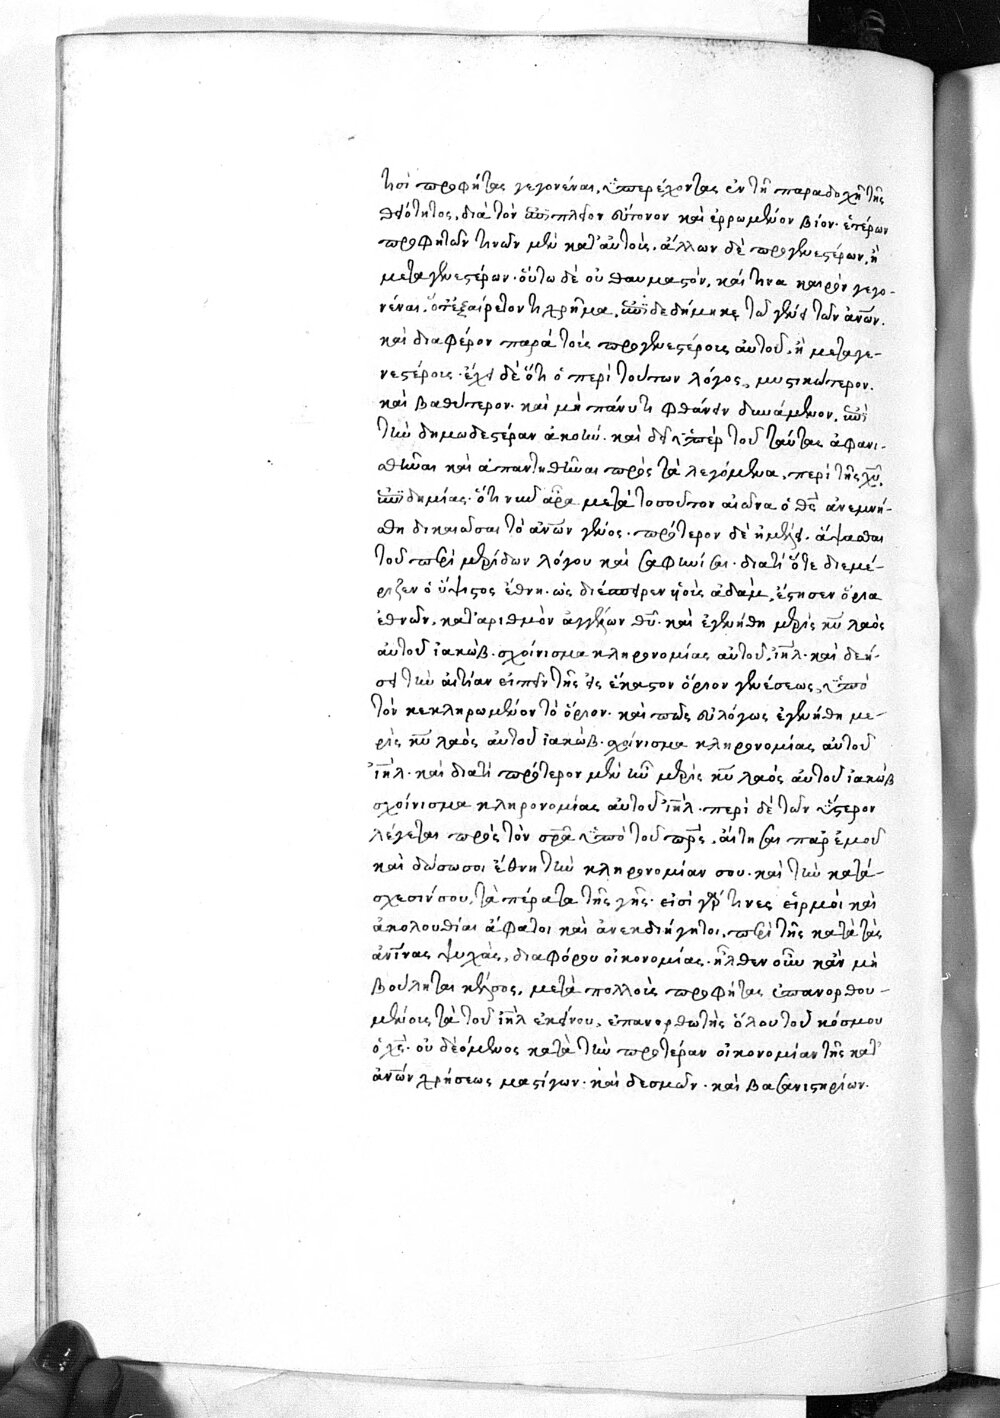 τισὶ προφήτας γεγονέναι, ὑπερέχοντας ἐν τῇ παραδοχῇ τῆς
θειότητος, διὰ τὸν ἐπιπλεῖον εὔτονον καὶ ἐρρωμένον βίον· ἑτέρων
προφητῶν τινῶν μὲν κατ' αὐτοὺς, ἄλλων δὲ προγενεστέρων, ἢ
μεταγενεστέρων· οὕτω δὲ οὐ θαυμαστὸν, καί τινα καιρὸν γεγο-
νέναι, ὅτ' ἐξαίρετόν τι χρῆμα, ἐπιδεδήμηκε τῷ γένει τῶν ἀνων.
καὶ διαφέρον παρὰ τοὺς προγενεστέρους αὐτοῦ, ἢ μεταγε-
νεστέρους· ἔχει δὲ ὅτι ὁ περὶ τούτων λόγος, μυστικώτερον.
καὶ βαθύτερον· καὶ μὴ πάνυ τι φθάνειν δυνάμενον, ἐπὶ
τὴν δημωδεστέραν ἀκοήν· καὶ δεῖ ὑπὲρ τοῦ ταῦτας ἀφανι-
σθῆναι καὶ ἀπαντηθῆναι πρὸς τὰ λεγόμενα, περὶ τῆς χυ,
ἐπιδημίας· ὅτι νῦν ἄρα μετὰ τοσοῦτον αἰῶνα ὁ θς ἀνεμνή-
σθη δικαιῶσαι τὸ ἀνων γένος· πρότερον δὲ ἠμέλει· ἅψασθαι
τοῦ περὶ μερίδων λόγου καὶ σαφηνίσαι· διατί ὅτε διεμέ-
ριζεν ὁ ὕψιστος ἔθνη· ὡς διέσπειρεν υἱοὺς ἀδάμ, ἔστησεν ὅρια
ἐθνῶν, κατ' ἀριθμὸν ἀγγέλων θυ· καὶ ἐγενήθη μερὶς κυ λαὸς
αὐτοῦ ἰακώβ· σχοίνισμα κληρονομίας αὐτοῦ, ιηλ· καὶ δεή-
σει τὴν αἰτίαν εἰπεῖν τῆς εἰς ἕκαστον ὅριον γενέσεως, ὑπὸ
τὸν κεκληρωμένον τὸ ὅριον· καὶ πῶς εὐλόγως ἐγενήθη με-
ρὶς κυ λαὸς αὐτοῦ ἰακώβ· σχοίνισμα κληρονομίας αὐτοῦ
ιηλ· καὶ διατί πρότερον μὲν ἦν μερὶς κυ λαὸς αὐτοῦ ἰακώβ
σχοίνισμα κληρονομίας αὐτοῦ ιηλ· περὶ δὲ τῶν ὕστερον
λέγεται πρὸς τὸν σρα ὑπὸ τοῦ πρς, αἴτησαι παρ' ἐμοῦ
καὶ δώσω σοι ἔθνη τὴν κληρονομίαν σου· καὶ τὴν κατά-
σχεσίν σου, τὰ πέρατα τῆς γῆς· εἰσὶ γάρ τινες εἱρμοὶ καὶ
ἀκολουθίαι ἄφατοι καὶ ἀνεκδιήγητοι, περὶ τῆς κατὰ τὰς
ἀνίνας ψυχὰς, διαφόρου οἰκονομίας· ἦλθεν οὖν κἂν μὴ
βούληται κέλσος, μετὰ πολλοὺς προφήτας ἐπανορθου-
μένους τὰ τοῦ ιηλ ἐκείνου, ἐπανορθωτὴς ὅλου τοῦ κόσμου
ὁ χς· οὐ δεόμενος κατὰ τὴν προτέραν οἰκονομίαν τῆς κατ'
ἀνων χρήσεως μαστίγων· καὶ δεσμῶν· καὶ βασανιστηρίων.